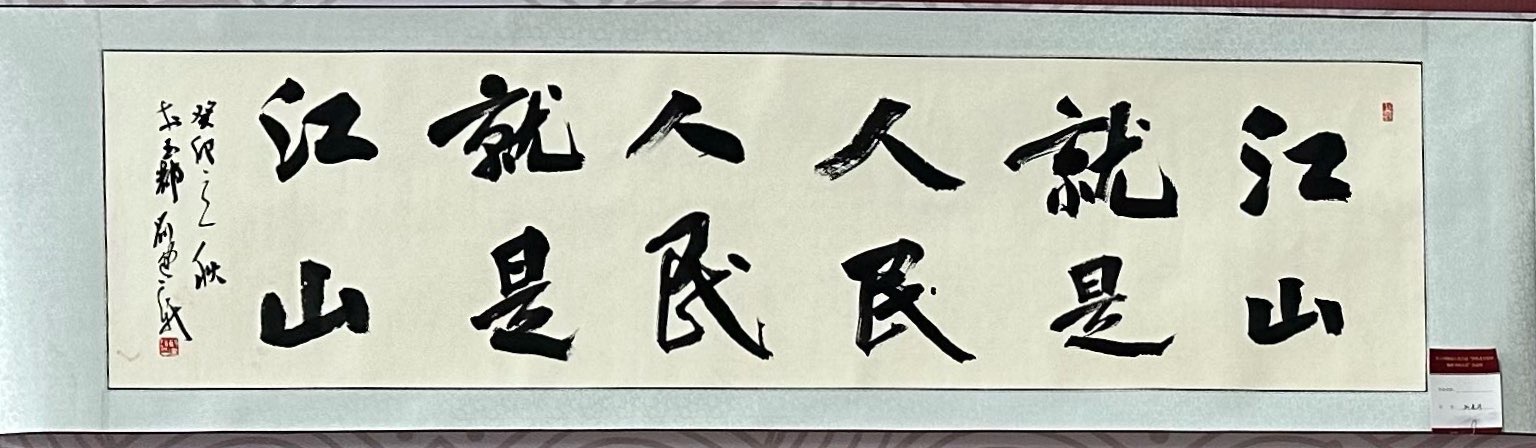 江山
就是
人民
人民
就是
江山
癸卯之秋